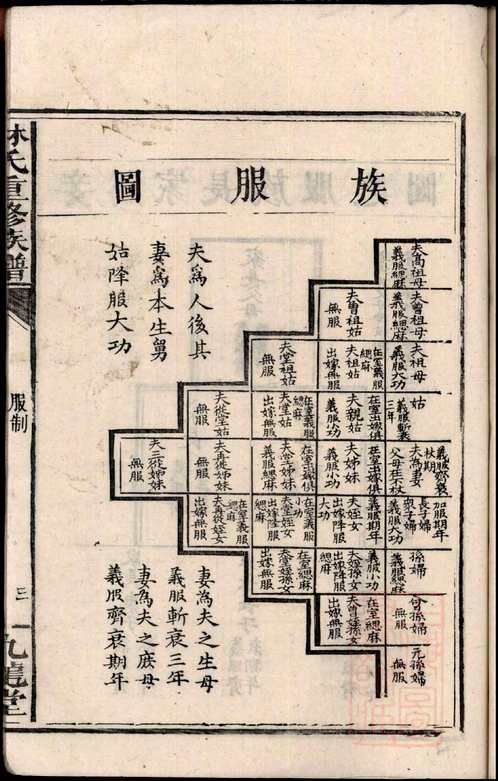 族服圖
夫高祖母
義服緦麻
夫曾祖母
義服緦麻
夫祖母
義服大功
姑
義服斬衰
三年
夫為妻
父母在不杖
義服齊衰
杖期
長子婦
加服期年
衆子婦
義服大功
孫婦
義服緦麻
曾孫婦
無服
元孫婦
無服
夫曾祖姑
無服
夫祖姑
在室義服
緦麻
出嫁無服
夫親姑
在室出嫁俱
義服小功
夫姊妹
在室出嫁俱
義服小功
夫姪女
義服期年
出嫁降服
大功
夫姪孫女
義服小功
出嫁降服
緦麻
夫曾孫女
在室緦麻
出嫁無服
夫堂祖姑
無服
夫堂姑
在室義服
緦麻
出嫁無服
夫堂姊妹
在室出嫁俱
義服緦麻
夫堂姪女
在室義服
小功
出嫁降服
緦麻
夫堂孫女
在室緦麻
出嫁無服
夫從堂姑
無服
夫再從姊妹
無服
夫再從姪女
在室義服
緦麻
出嫁無服
夫三從姊妹
無服
夫為人後其
妻為本生舅
姑降服大功
妻為夫之生母
義服斬衰三年
妻為夫之庶母
義服齊衰期年
林氏重修族譜
服制
三
九龍堂